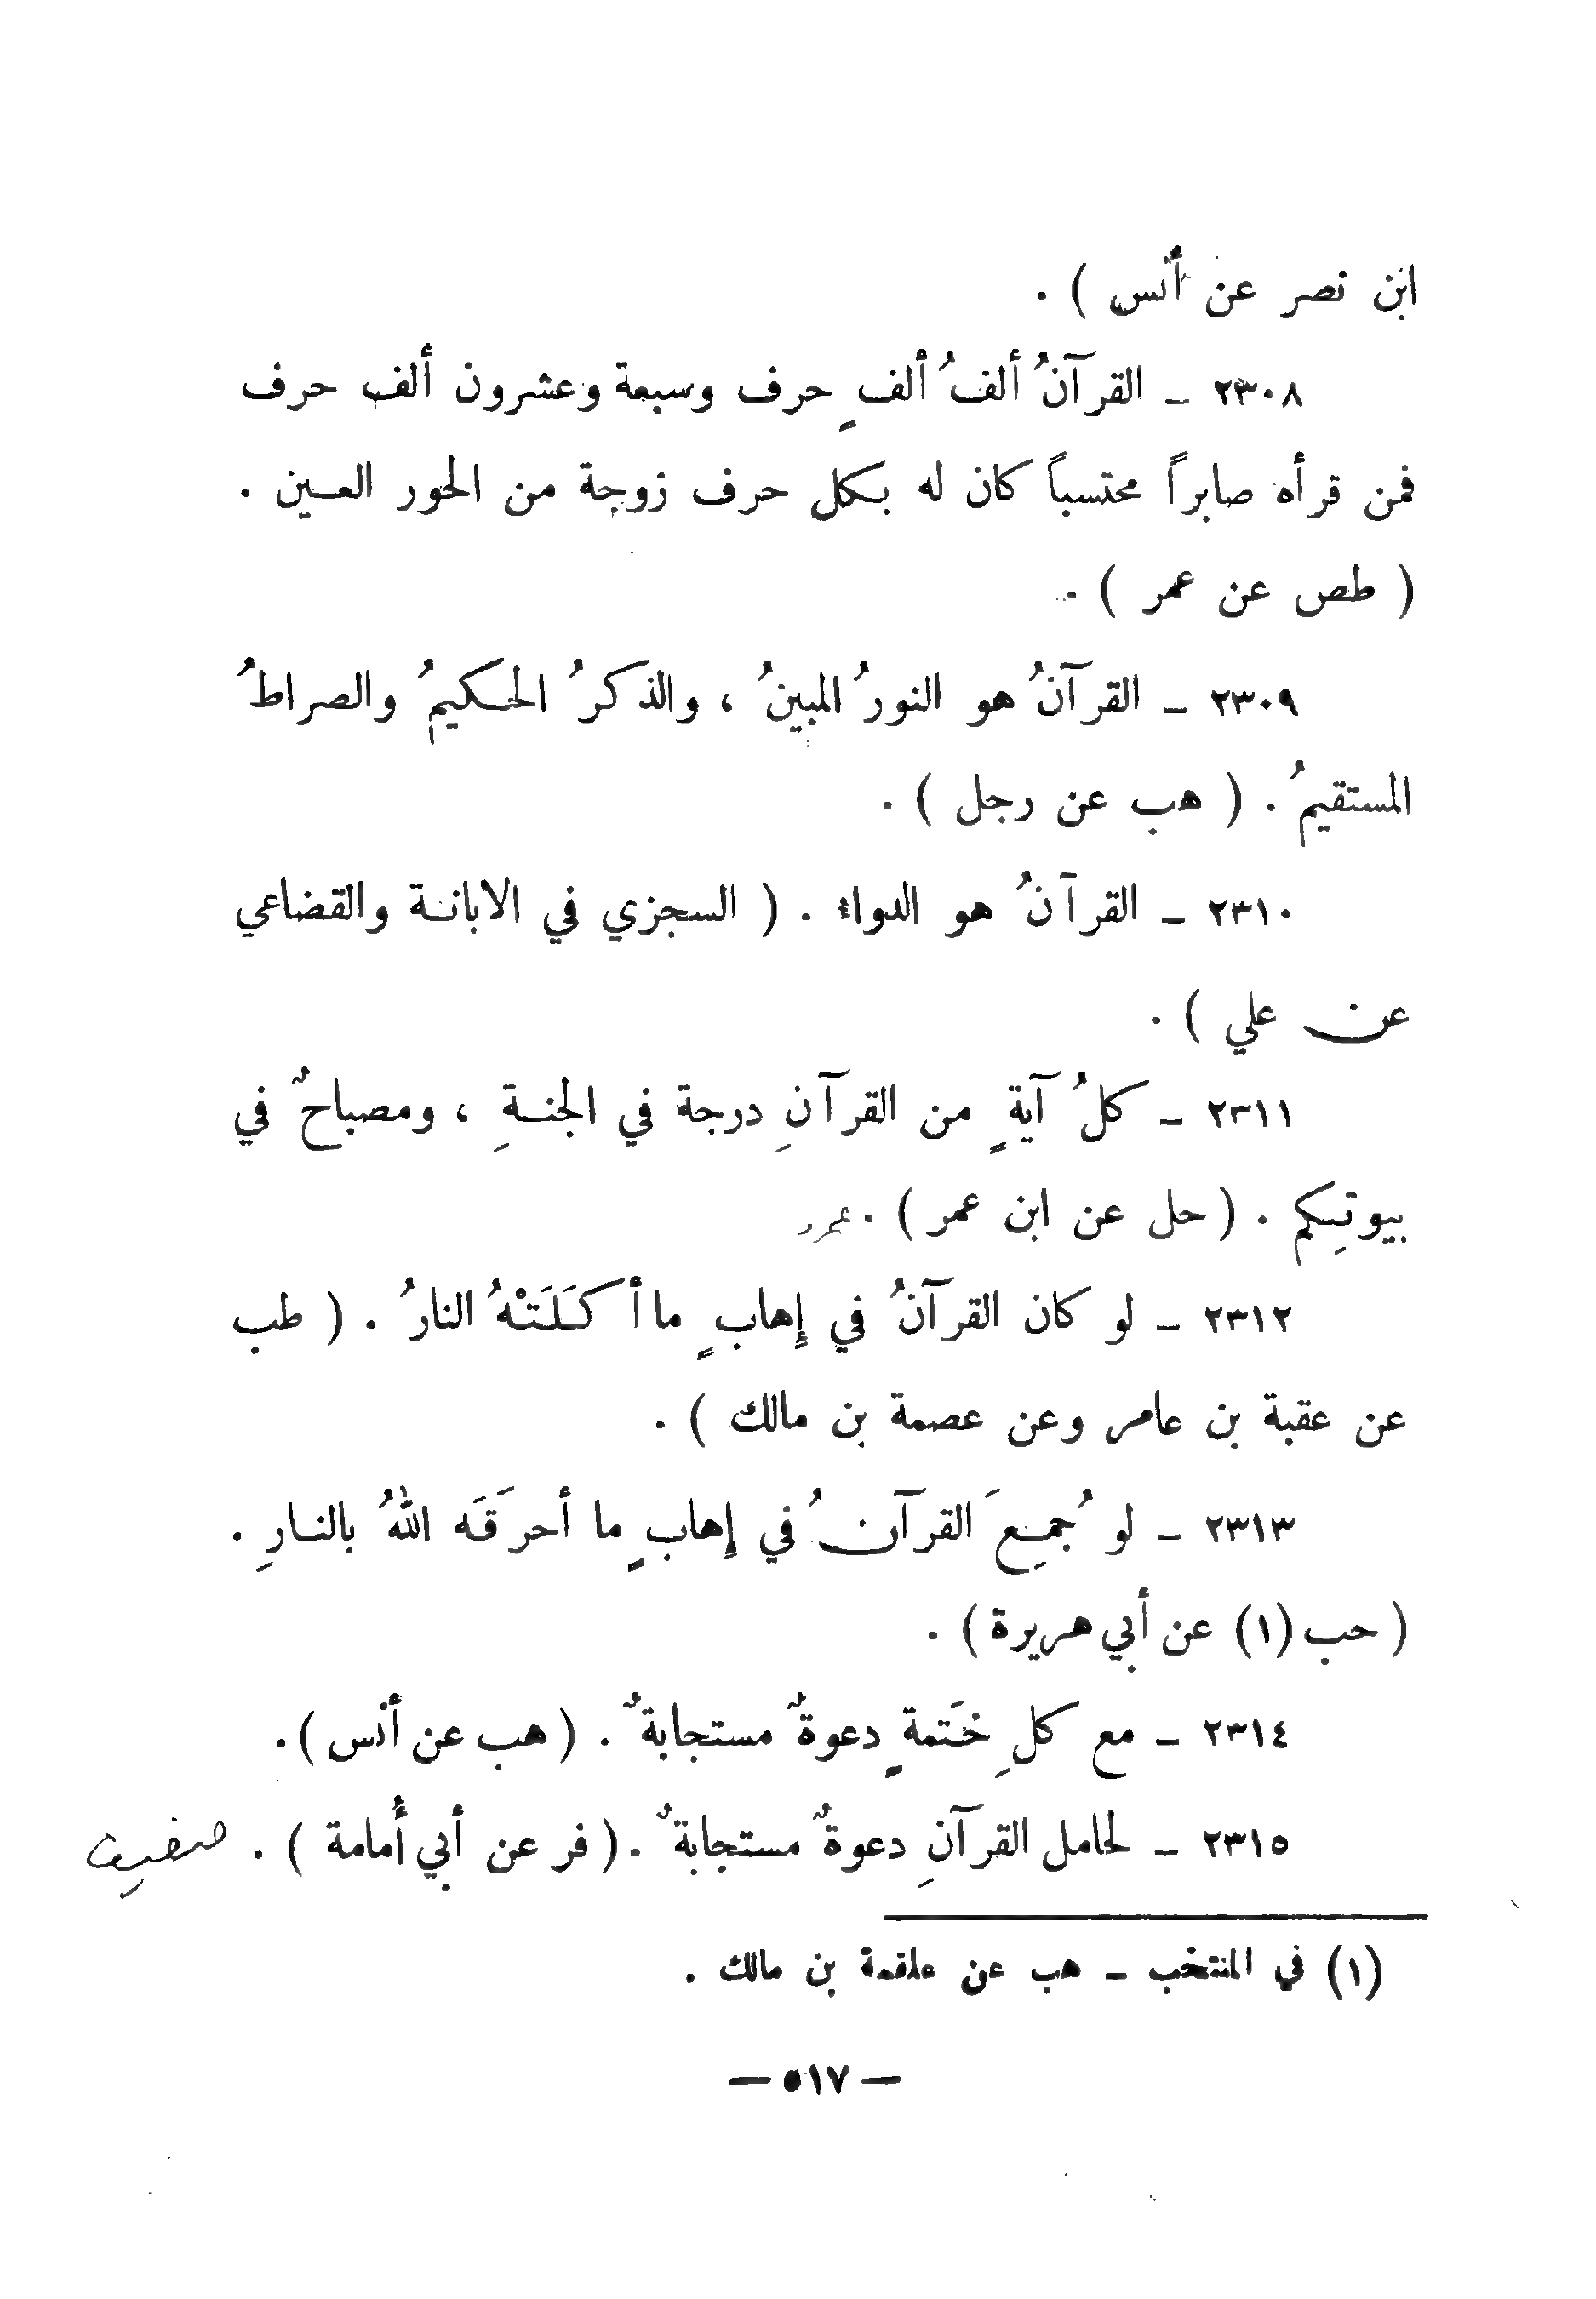 ابن نصر عن أنس ) .
٢٣٠٨ ـ القرآنُ ألفُ ألفٍ حرف وسبعة وعشرون ألف حرف
فمن قرأه صابراً محتسباً كان له بكل حرف زوجة من الحور العـين .
( طص عن عمر ) .
٢٣٠٩ ـ القرآنُ هو النورُ المبينُ ، والذكرُ الحـكيمُ والصراطُ
المستقيمُ . ( هب عن رجل ) .
٢٣١٠ ـ القرآنُ هو الدواء . ( السجزي في الابانـة والقضاعي
عن علي ) .
٢٣١١ ـ كلُ آيةٍ من القرآنِ درجة في الجنـةِ ، ومصباحٌ في
بيوتِكم . ( حل عن ابن عمر ) . عمرو
٢٣١٢ ـ لو كان القرآنُ في إهابٍ ما أكـَلَتـْهُ النارُ . ( طب
عن عقبة بن عامر وعن عصمة بن مالك ) .
٢٣١٣ ـ لو جُمـِعَ القرآنُ في إهابٍ ما أحرَقَـه اللهُ بالنـارِ .
( حب (١) عن أبي هريرة ) .
٢٣١٤ ـ مع كلِ خَتمةٍ دعوةٌ مستجابةٌ . ( هب عن أنس ) .
٢٣١٥ ـ لحامل القرآنِ دعوةٌ مستجابةٌ . ( فر عن أبي أُمامة ) . ضعيف
(١) في المنتخب ـ هب عن علقمة بن مالك .
— ٥١٧ —